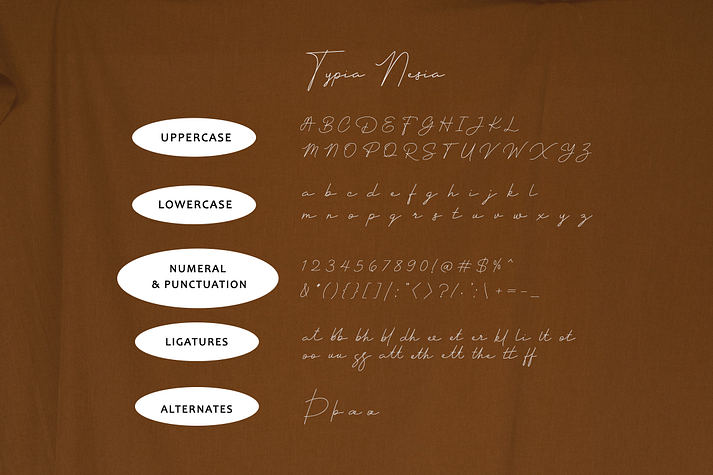 Typia Nesia
UPPERCASE
A B C D E F G H I J K L
M N O P Q R S T U V W X Y Z
LOWERCASE
a b c d e f g h i j k l
m n o p q r s t u v w x y z
NUMERAL
& PUNCTUATION
1 2 3 4 5 6 7 8 9 0 ! @ # $ % ^
& * ( ) { } [ ] / : " < > ? / . ' ; \ + = - _
LIGATURES
at bb bh bl dh ee et er kl li lt ot
oo uu gg att eth ett the tt ff
ALTERNATES
D p a a